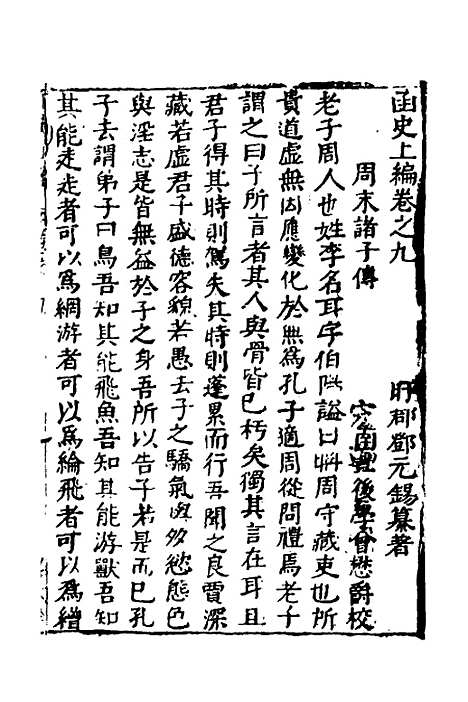 函史上編卷之九
盱郡鄧元錫纂著
周末諸子傳
後學曾懋爵校
老子周人也姓李名耳字伯陽諡曰聃周守藏吏也所
貴道虛無因應變化於無為孔子適周從問禮焉老子
謂之曰子所言者其人與骨皆已朽矣獨其言在耳且
君子得其時則駕失其時則蓬累而行吾聞之良賈深
藏若虛君子盛德容貌若愚去子之驕氣與多慾態色
與淫志是皆無益於子之身吾所以告子若是而已孔
子去謂弟子曰鳥吾知其能飛魚吾知其能游獸吾知
其能走走者可以為網游者可以為綸飛者可以為繒